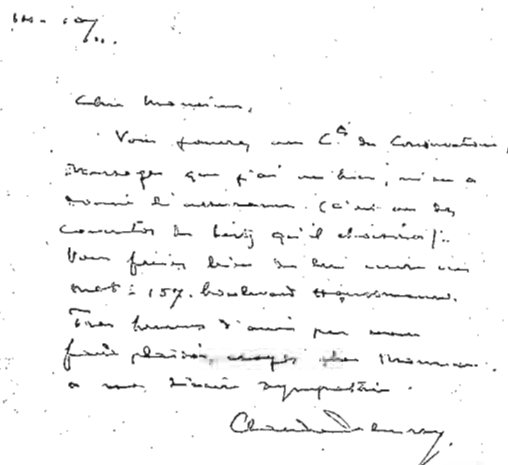 Cher Monsieur,
Vous pouvez au C^t du Conservatoire,
Messager que j'ai vu hier, m'en a
donné l'assurance. (c'est un des
Concertos de qu'il choisira).
Vous feriez bien de lui un
mot : 157. boulevard Haussmann.
Très heureux d'avoir pu vous
faire plaisir, croyez cher Monsieur.
à ma sincère sympathie.
Claude Debussy.